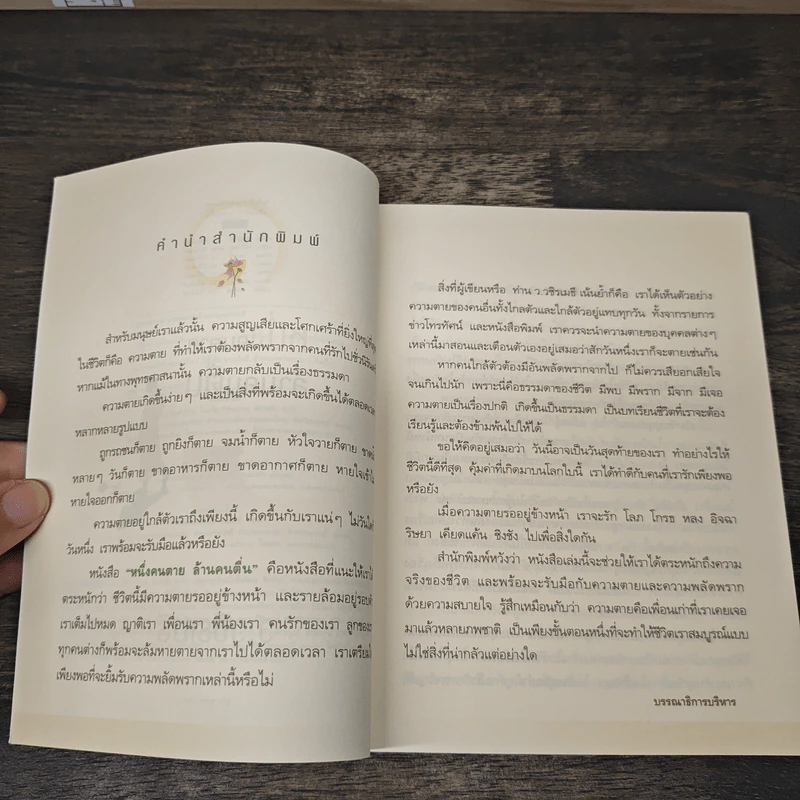 คำนำสำนักพิมพ์
สำหรับมนุษย์เราแล้วนั้น ความสูญเสียและโศกเศร้าที่ยิ่งใหญ่ที่สุด
ในชีวิตก็คือ ความตาย ที่ทำให้เราต้องพลัดพรากจากคนที่รักไปชั่วนิรันดร์
หากแม้ในทางพุทธศาสนานั้น ความตายกลับเป็นเรื่องธรรมดา
ความตายเกิดขึ้นง่ายๆ และเป็นสิ่งที่พร้อมจะเกิดขึ้นได้ตลอดเวลา
หลากหลายรูปแบบ
ถูกรถชนก็ตาย ถูกยิงก็ตาย จมน้ำก็ตาย หัวใจวายก็ตาย
หลายๆ วันก็ตาย ขาดอาหารก็ตาย ขาดอากาศก็ตาย หายใจเข้า
หายใจออกก็ตาย
ความตายอยู่ใกล้ตัวเราถึงเพียงนี้ เกิดขึ้นกับเราแน่ๆ ไม่วันใด
วันหนึ่ง เราพร้อมจะรับมือแล้วหรือยัง
หนังสือ "หนึ่งคนตาย ล้านคนตื่น" คือหนังสือที่แนะให้เรา
ตระหนักว่า ชีวิตนี้มีความตายรออยู่ข้างหน้า และรายล้อมอยู่รอบ
เราเต็มไปหมด ญาติเรา เพื่อนเรา พี่น้องเรา คนรักของเรา ลูกของ
ทุกคนต่างก็พร้อมจะล้มหายตายจากเราไปได้ตลอดเวลา เราเตรียม
เพียงพอที่จะยิ้มรับความพลัดพรากเหล่านี้หรือไม่
สิ่งที่ผู้เขียนหรือ ท่าน ว.วชิรเมธี เน้นย้ำก็คือ เราได้เห็นตัวอย่าง
ความตายของคนอื่นทั้งไกลตัวและใกล้ตัวอยู่แทบทุกวัน ทั้งจากรายการ
ข่าวโทรทัศน์ และหนังสือพิมพ์ เราควรจะนำความตายของบุคคลต่างๆ
เหล่านี้มาสอนและเตือนตัวเองอยู่เสมอว่าสักวันหนึ่งเราก็จะตายเช่นกัน
หากคนใกล้ตัวต้องมีอันพลัดพรากจากไป ก็ไม่ควรเสียอกเสียใจ
จนเกินไปนัก เพราะนี่คือธรรมดาของชีวิต มีพบ มีพราก มีจาก มีเจอ
ความตายเป็นเรื่องปกติ เกิดขึ้นเป็นธรรมดา เป็นบทเรียนชีวิตที่เราจะต้อง
เรียนรู้และต้องข้ามพ้นไปให้ได้
ขอให้คิดอยู่เสมอว่า วันนี้อาจเป็นวันสุดท้ายของเรา ทำอย่างไรให้
ชีวิตนี้ดีที่สุด คุ้มค่าที่เกิดมาบนโลกใบนี้ เราได้ทำดีกับคนที่เรารักเพียงพอ
หรือยัง
เมื่อความตายรออยู่ข้างหน้า เราจะรัก โลภ โกรธ หลง อิจฉา
ริษยา เคียดแค้น ชิงชัง ไปเพื่อสิ่งใดกัน
สำนักพิมพ์หวังว่า หนังสือเล่มนี้จะช่วยให้เราได้ตระหนักถึงความ
จริงของชีวิต และพร้อมจะรับมือกับความตายและความพลัดพราก
ด้วยความสบายใจ รู้สึกเหมือนกับว่า ความตายคือเพื่อนเก่าที่เราเคยเจอ
มาแล้วหลายภพชาติ เป็นเพียงขั้นตอนหนึ่งที่จะทำให้ชีวิตเราสมบูรณ์แบบ
ไม่ใช่สิ่งที่น่ากลัวแต่อย่างใด
บรรณาธิการบริหาร